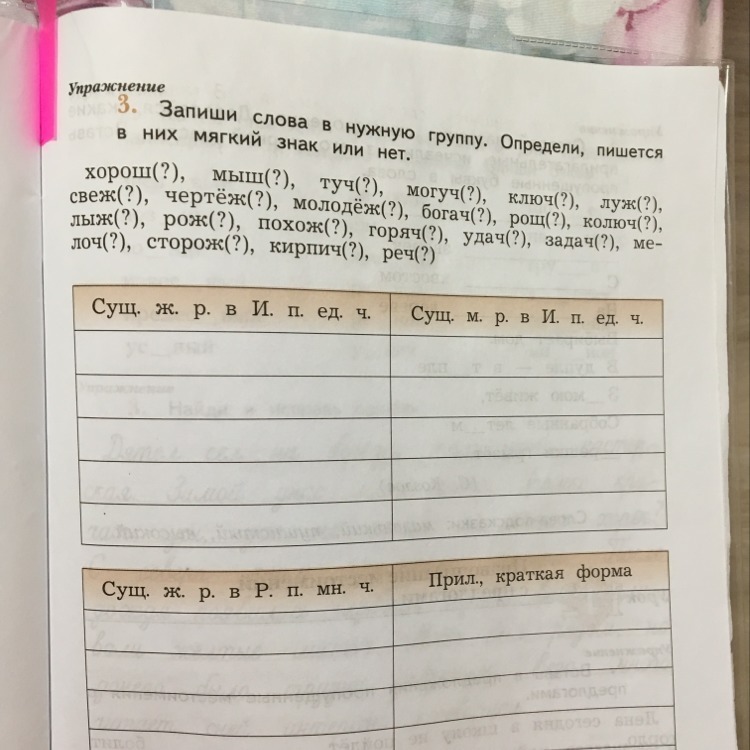 Упражнение
3. Запиши слова в нужную группу. Определи, пишется
в них мягкий знак или нет.
хорош(?), мыш(?), туч(?), могуч(?), ключ(?), луж(?),
свеж(?), чертёж(?), молодёж(?), богач(?), рощ(?), колюч(?),
лыж(?), рож(?), похож(?), горяч(?), удач(?), задач(?), ме-
лоч(?), сторож(?), кирпич(?), реч(?)
Сущ. ж. р. в И. п. ед. ч. Сущ. м. р. в И. п. ед. ч.
Сущ. ж. р. в Р. п. мн. ч. Прил., краткая форма